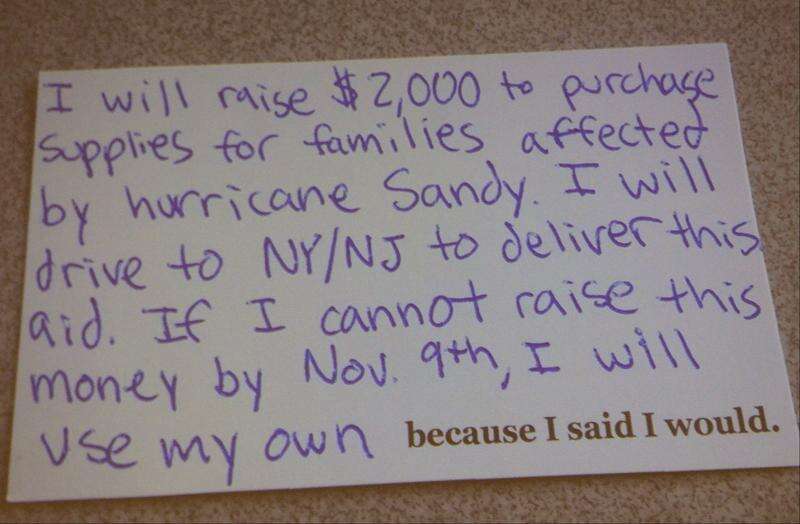 I will raise $2,000 to purchase
supplies for families affected
by hurricane Sandy. I will
drive to NY/NJ to deliver this
aid. If I cannot raise this
money by Nov. 9th, I will
use my own because I said I would.